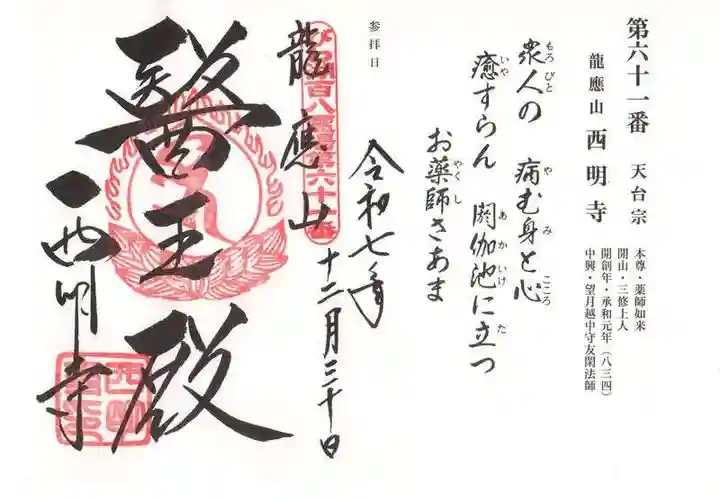 第六十一番 天台宗
龍應山 西明寺
本尊・薬師如来
開山・三修上人
開創年・承和元年(八三四)
中興・望月越中守友閑法師
衆人の 病む身と心
癒すらん 閼伽池に立つ
お薬師さあま
参拝日
令和七年
十二月三十日
龍應山
醫王殿
西明寺